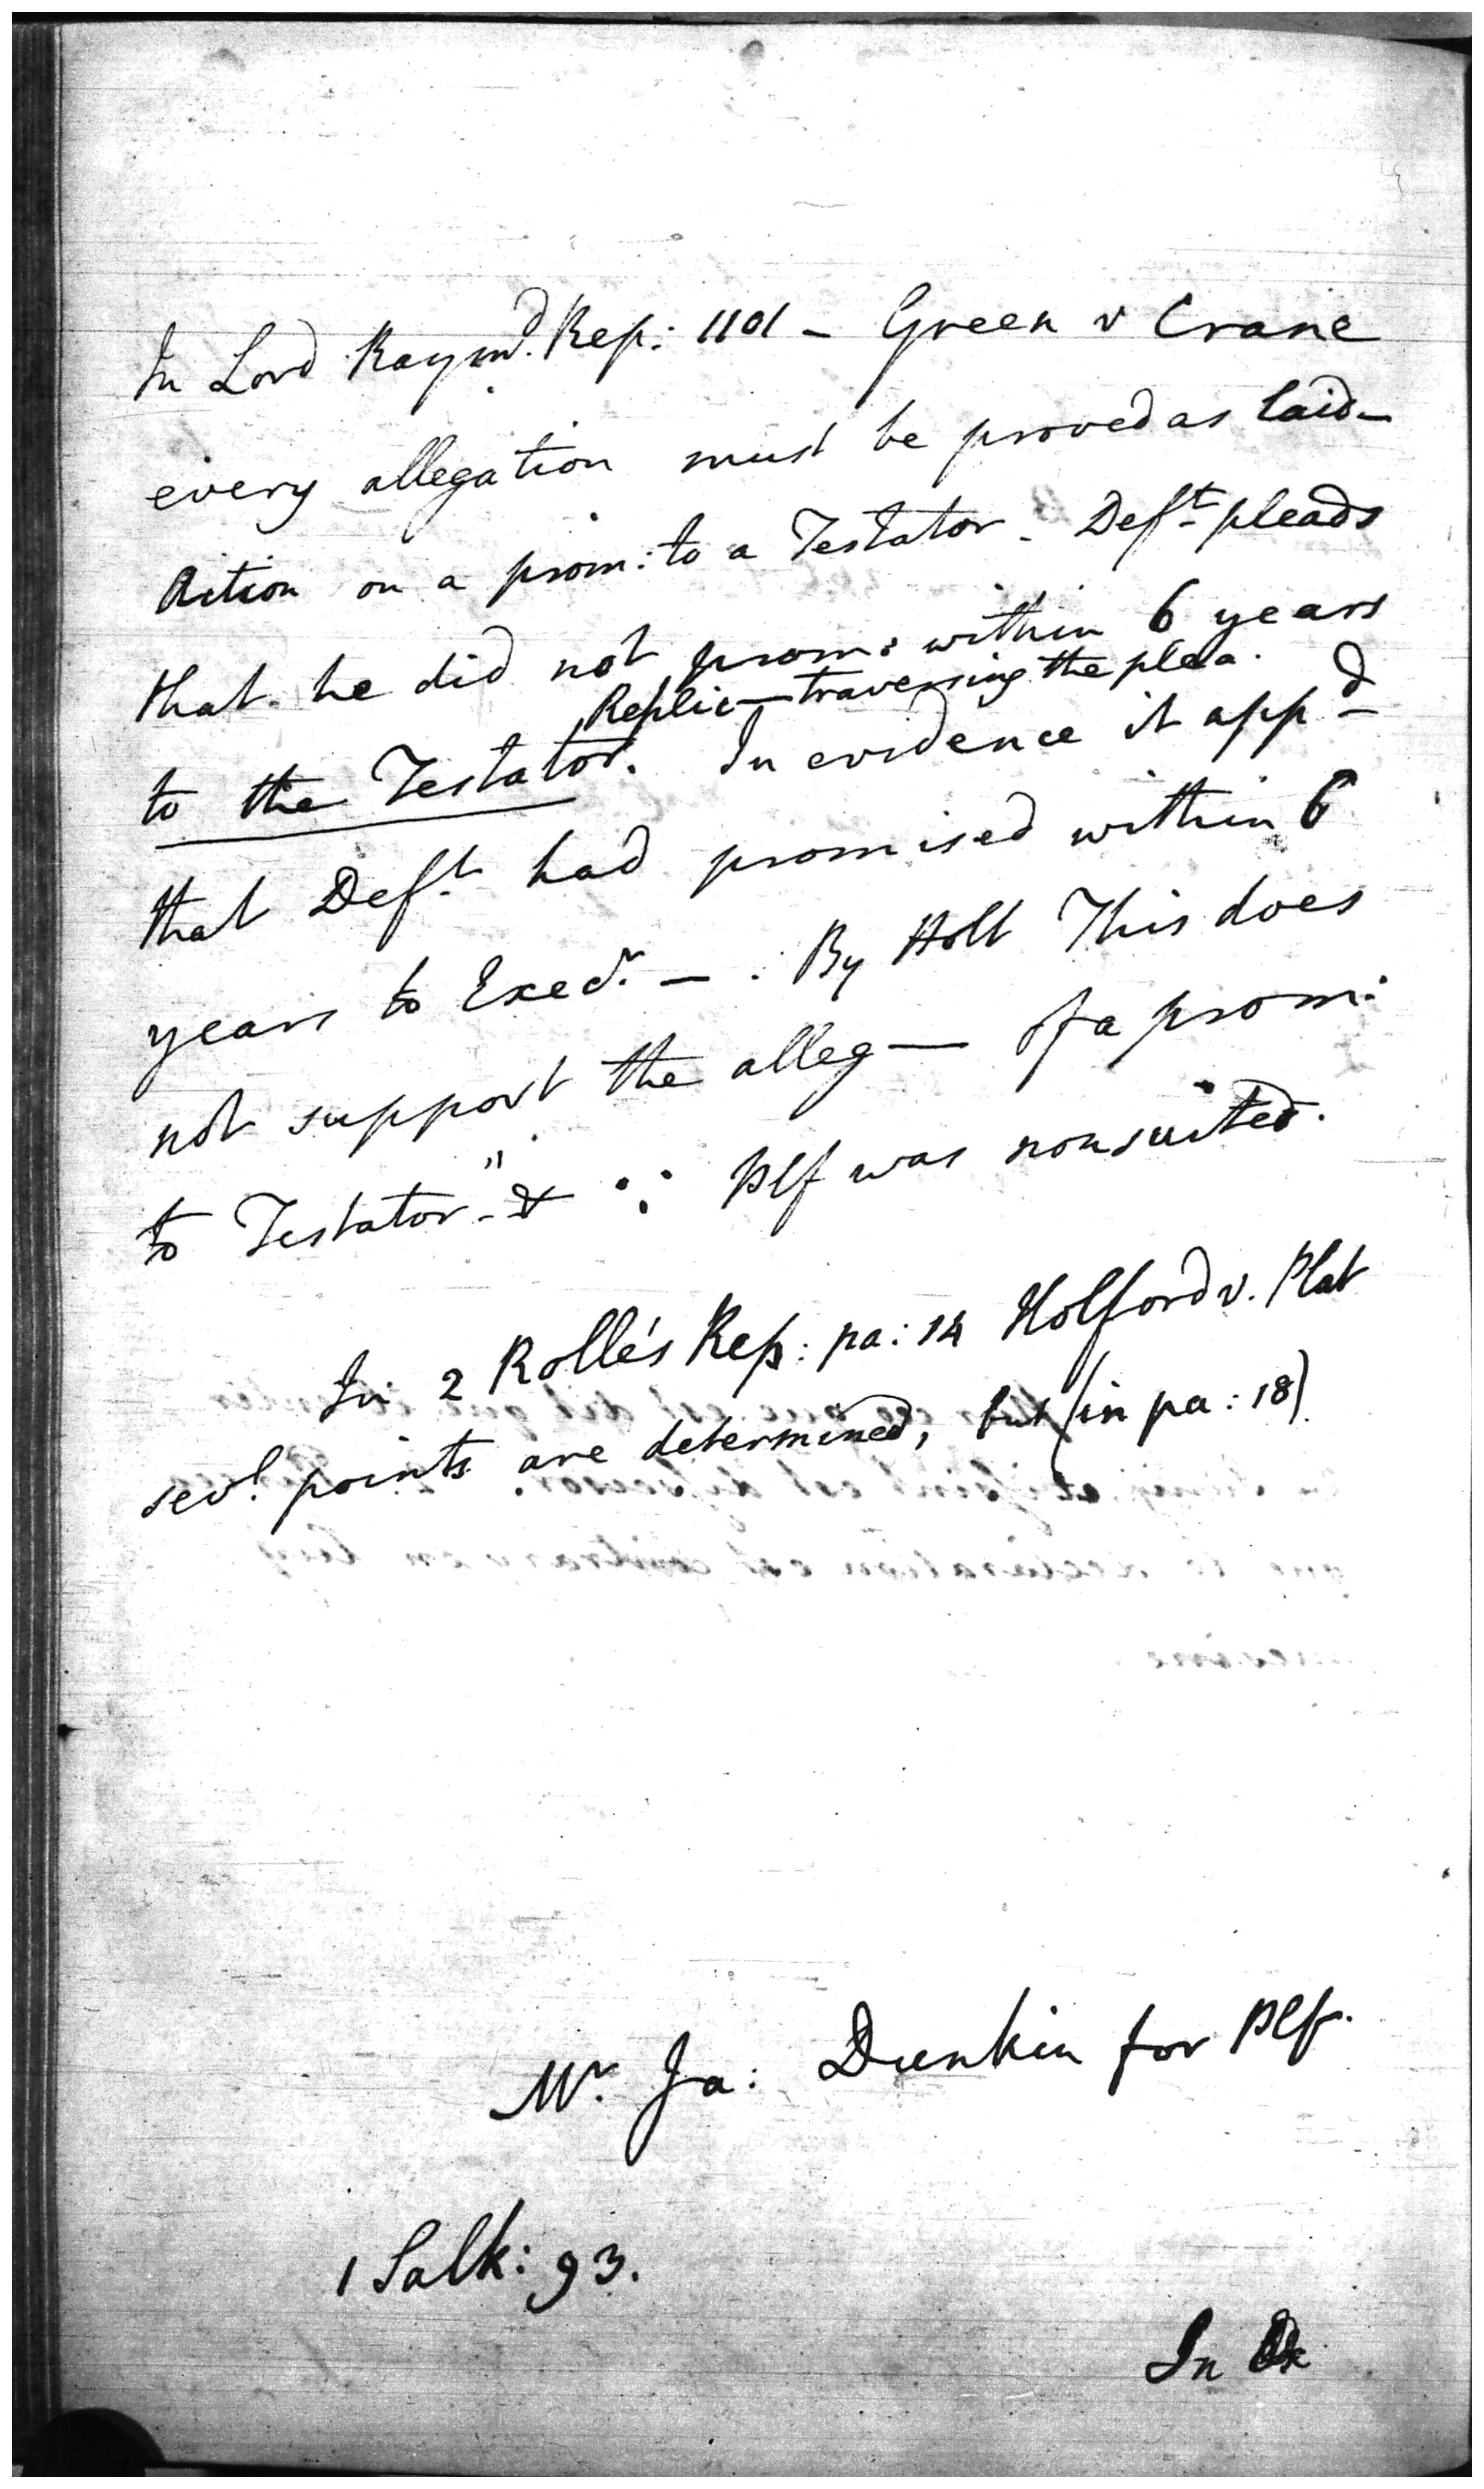 In Lord Raymd. Rep: 1101 - Green v Crane
every allegation must be proved as laid-
Action on a prom: to a Testator - Deft pleads
that he did not prom: within 6 years
Replic— traversing the plea.
to the Testator. In evidence it appd
that Deft had promised within 6
years to Execr. — . By Holt This does
not support the alleg— of a prom:
to Testator" - & ∵ Plf was nonsuited.
In 2 Rolle's Rep: pa: 14 Holford v. Plat
sevl. points are determined, but (in pa: 18)
Mr. Ja: Dunkin for Plf.
1 Salk: 93.
In